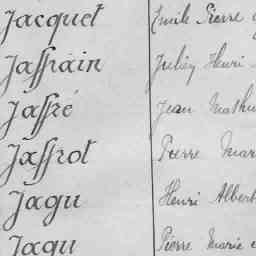 Jacquet Emile Pierre
Jaffrain Julien Henri
Jaffré Jean Mathu
Jaffrot Pierre Mar
Jagu Henri Albert
Jagu Pierre Marie